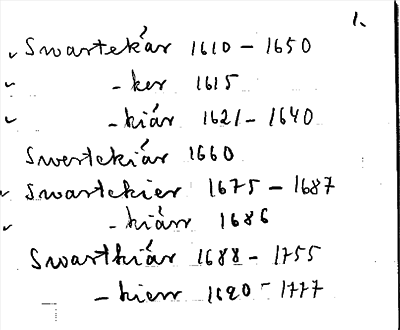 1.
Swartekár 1610 - 1650
-ker 1615
-kiár 1621 - 1640
Swertekiár 1660
Swartekier 1675 - 1687
-kiárr 1686
Swartkiár 1688 - 1755
-kierr 1690 - 1777